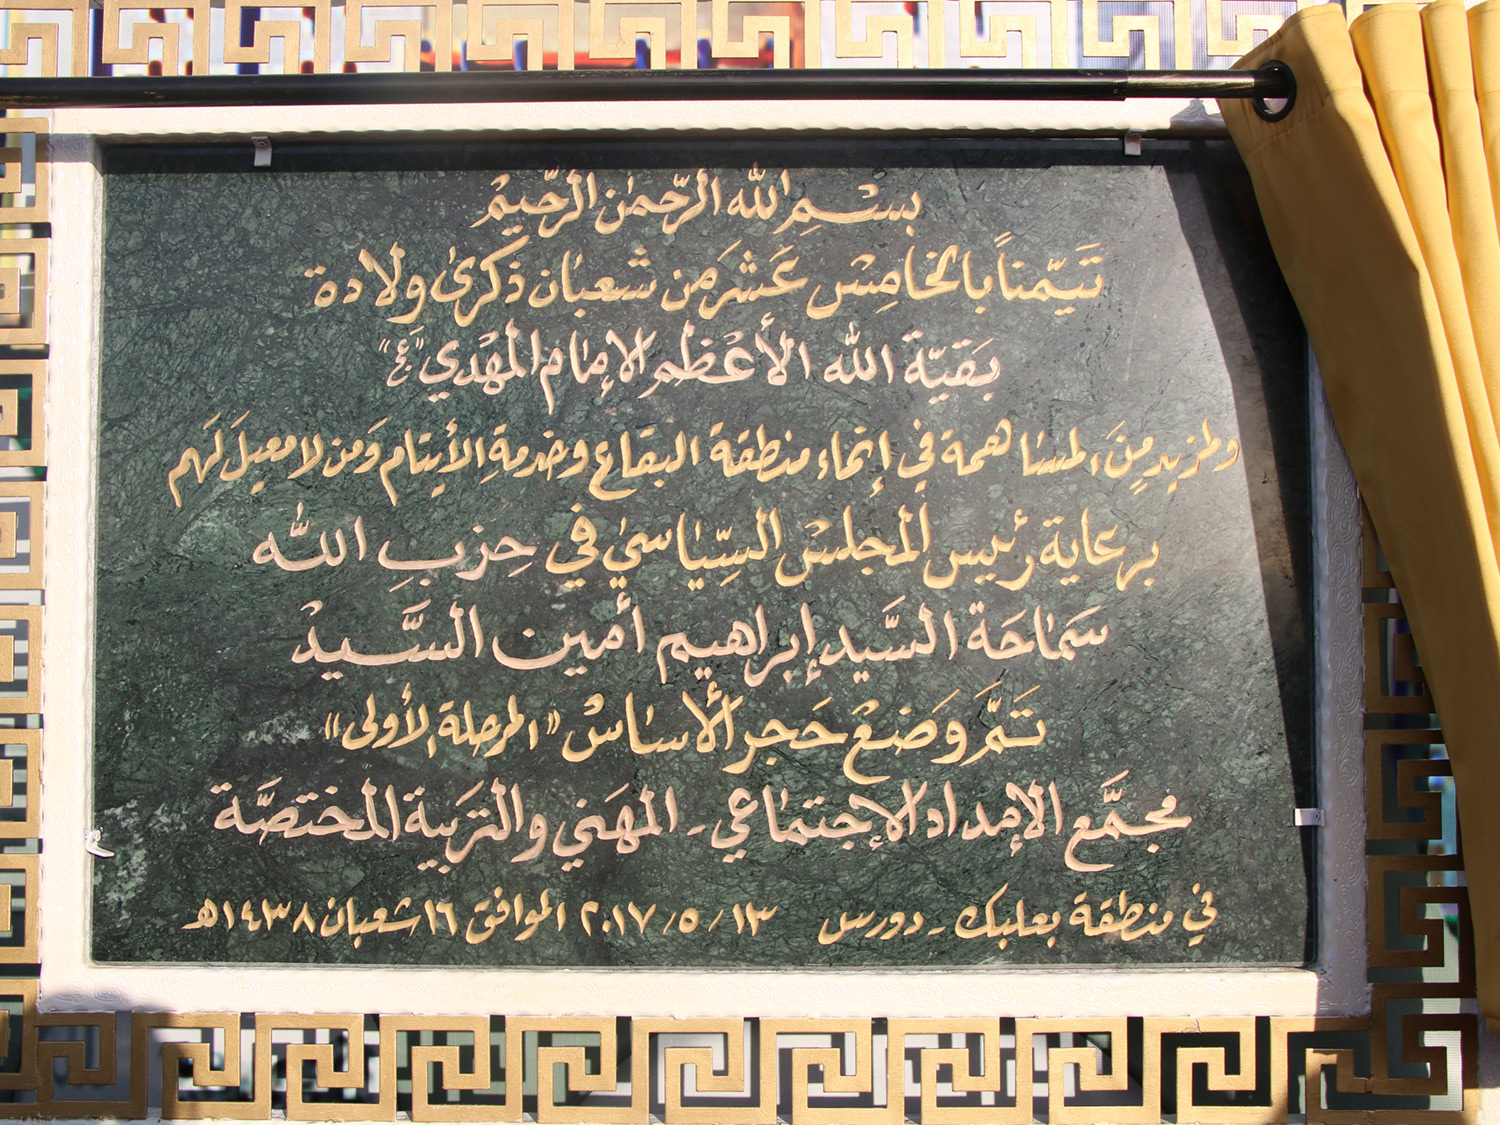 بِسْمِ اللهِ الرَّحمٰنِ الرَّحيمْ
تَيَمّناً بالخامِسْ عَشَرَ من شعبان ذكرى ولادة
بَقيّة الله الأعْظم الإمام المَهْدي "عج"
ولمزيدٍ مِنَ المساهمة في إنماء منطقة البقاع وخدمةِ الأيتام وَمن لا معيلَ لَهم
برعاية رئيس المجلسْ السِّياسي في حِزبِ الله
سَماحَة السَّيد إبراهيم أمين السَّيدْ
تَمَّ وَضعْ حَجر الأساسْ "المرحلة الأولى"
مجمَّع الإمداد الإجتماعي - المهَني والترَبية المختصَّة
في منطقة بعلبك - دورس ١٣/٥/٢٠١٧ الموافق ١٦ شعبان ١٤٣٨هـ